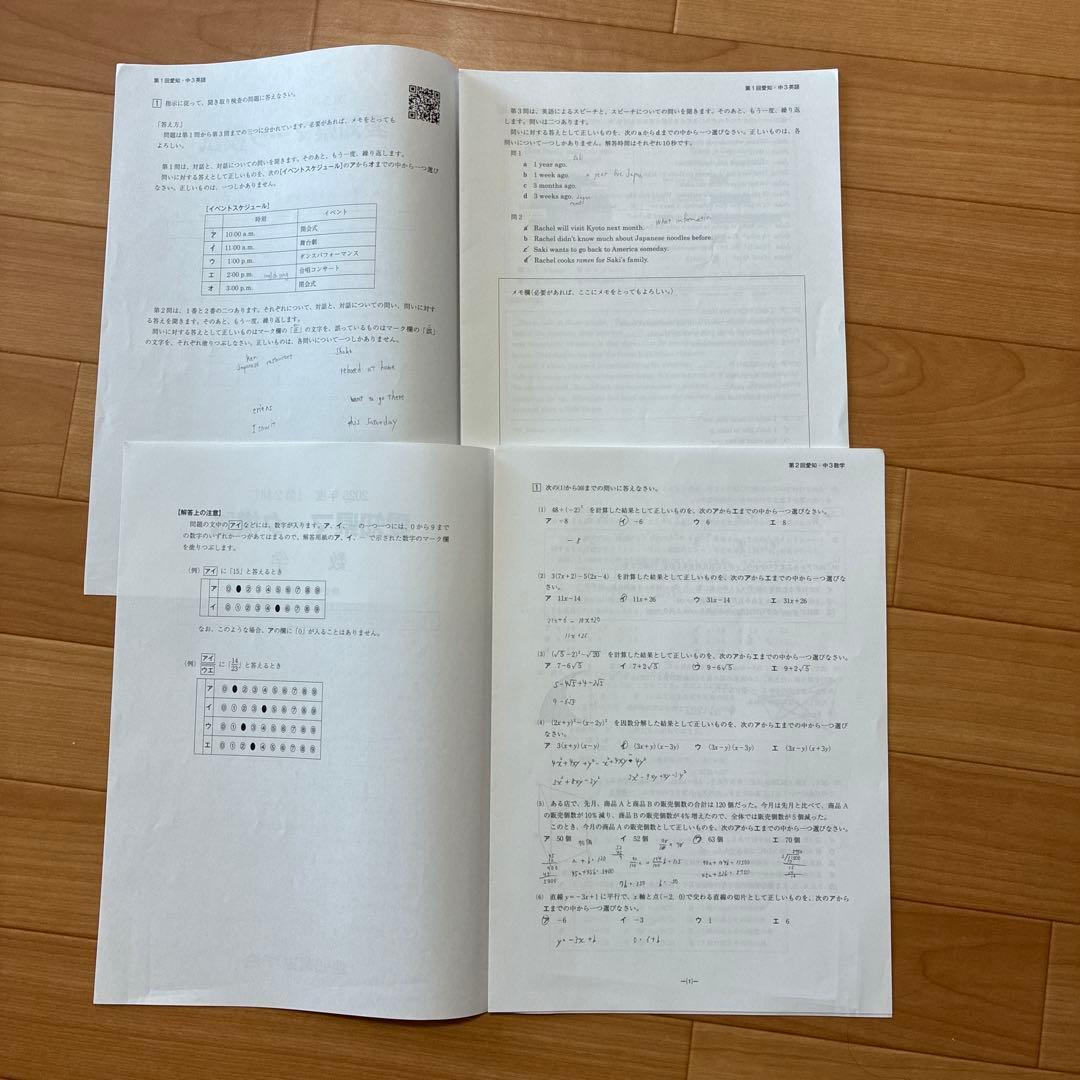 第1回愛知・中3英語
1 指示に従って、聞き取り検査の問題に答えなさい。
「答え方」
問題は第1問から第3問までの三つに分かれています。必要があれば、メモをとっても
よろしい。
第1問は、対話と、対話についての問いを聞きます。そのあと、もう一度、繰り返します。
問いに対する答えとして正しいものを、次の[イベントスケジュール]のアからオまでの中から一つ選び
なさい。正しいものは、一つしかありません。
[イベントスケジュール]
時刻 イベント
ア 10:00 a.m. 開会式
イ 11:00 a.m. 舞台劇
ウ 1:00 p.m. ダンスパフォーマンス
エ 2:00 p.m. 合唱コンサート
オ 3:00 p.m. 閉会式
第2問は、1番と2番の二つあります。それぞれについて、対話と、対話についての問い、問いに対す
る答えを聞きます。そのあと、もう一度、繰り返します。
問いに対する答えとして正しいものはマーク欄の「正」の文字を、誤っているものはマーク欄の「誤」
の文字を、それぞれ塗りつぶしなさい。正しいものは、各問いについて一つしかありません。
ken
Japanese restaurant
relaxed at home
want to go there
this saturday
第1回愛知・中3英語
第3問は、英語によるスピーチと、スピーチについての問いを聞きます。そのあと、もう一度、繰り返
します。問いは二つあります。
問いに対する答えとして正しいものを、次のaからdまでの中から一つ選びなさい。正しいものは、各
問いについて一つしかありません。解答時間はそれぞれ10秒です。
問1
a 1 year ago.
b 1 week ago.
c 3 months ago.
d 3 weeks ago.
問2
what information
a Rachel will visit Kyoto next month.
b Rachel didn't know much about Japanese noodles before.
c Saki wants to go back to America someday.
d Rachel cooks ramen for Saki's family.
メモ欄(必要があれば、ここにメモをとってもよろしい。)
【解答上の注意】
問題の文中のアイなどには、数字が入ります。ア、イ、…の一つ一つには、0から9まで
の数字のいずれか一つがあてはまるので、解答用紙のア、イ、…で示された数字のマーク欄
を塗りつぶします。
(例) アイ に「15」と答えるとき
ア ⓪ ● ② ③ ④ ⑤ ⑥ ⑦ ⑧ ⑨
イ ⓪ ① ② ③ ④ ● ⑥ ⑦ ⑧ ⑨
なお、このような場合、アの欄に「0」が入ることはありません。
(例) アイ/ウエ に「14/23」と答えるとき
ア ⓪ ● ② ③ ④ ⑤ ⑥ ⑦ ⑧ ⑨
イ ⓪ ① ② ③ ● ⑤ ⑥ ⑦ ⑧ ⑨
ウ ⓪ ① ● ③ ④ ⑤ ⑥ ⑦ ⑧ ⑨
エ ⓪ ① ② ● ④ ⑤ ⑥ ⑦ ⑧ ⑨
第2回愛知・中3数学
1 次の(1)から(10)までの問いに答えなさい。
(1) 48÷(−2)³ を計算した結果として正しいものを、次のアからエまでの中から一つ選びなさい。
ア −8 イ −6 ウ 6 エ 8
− 8
(2) 3(7x+2)−5(2x−4) を計算した結果として正しいものを、次のアからエまでの中から一つ選びな
さい。
ア 11x−14 イ 11x+26 ウ 31x−14 エ 31x+26
21x+6 − 10x+20
11x+26
(3) (√5−2)²−√20 を計算した結果として正しいものを、次のアからエまでの中から一つ選びなさい。
ア 7−6√5 イ 7+2√5 ウ 9−6√5 エ 9+2√5
5−4√5+4−2√5
9−6√5
(4) (2x+y)²−(x−2y)² を因数分解した結果として正しいものを、次のアからエまでの中から一つ選び
なさい。
ア 3(x+y)(x−y) イ (3x+y)(x−3y) ウ (3x−y)(x−3y) エ (3x−y)(x+3y)
3x²+8xy−3y²
(5) ある店で、先月、商品Aと商品Bの販売個数の合計は120個だった。今月は先月と比べて、商品A
の販売個数が10%減り、商品Bの販売個数が4%増えたので、全体では販売個数が5個減った。
このとき、今月の商品Aの販売個数として正しいものを、次のアからエまでの中から一つ選びなさい。
ア 50個 イ 52個 ウ 63個 エ 70個
a + b = 120
(6) 直線 y=−3x+1 に平行で、x軸と点(−2, 0)で交わる直線の切片として正しいものを、次のアから
エまでの中から一つ選びなさい。
ア −6 イ −3 ウ 1 エ 6
y=−3x+b 0=6+b
—(1)—